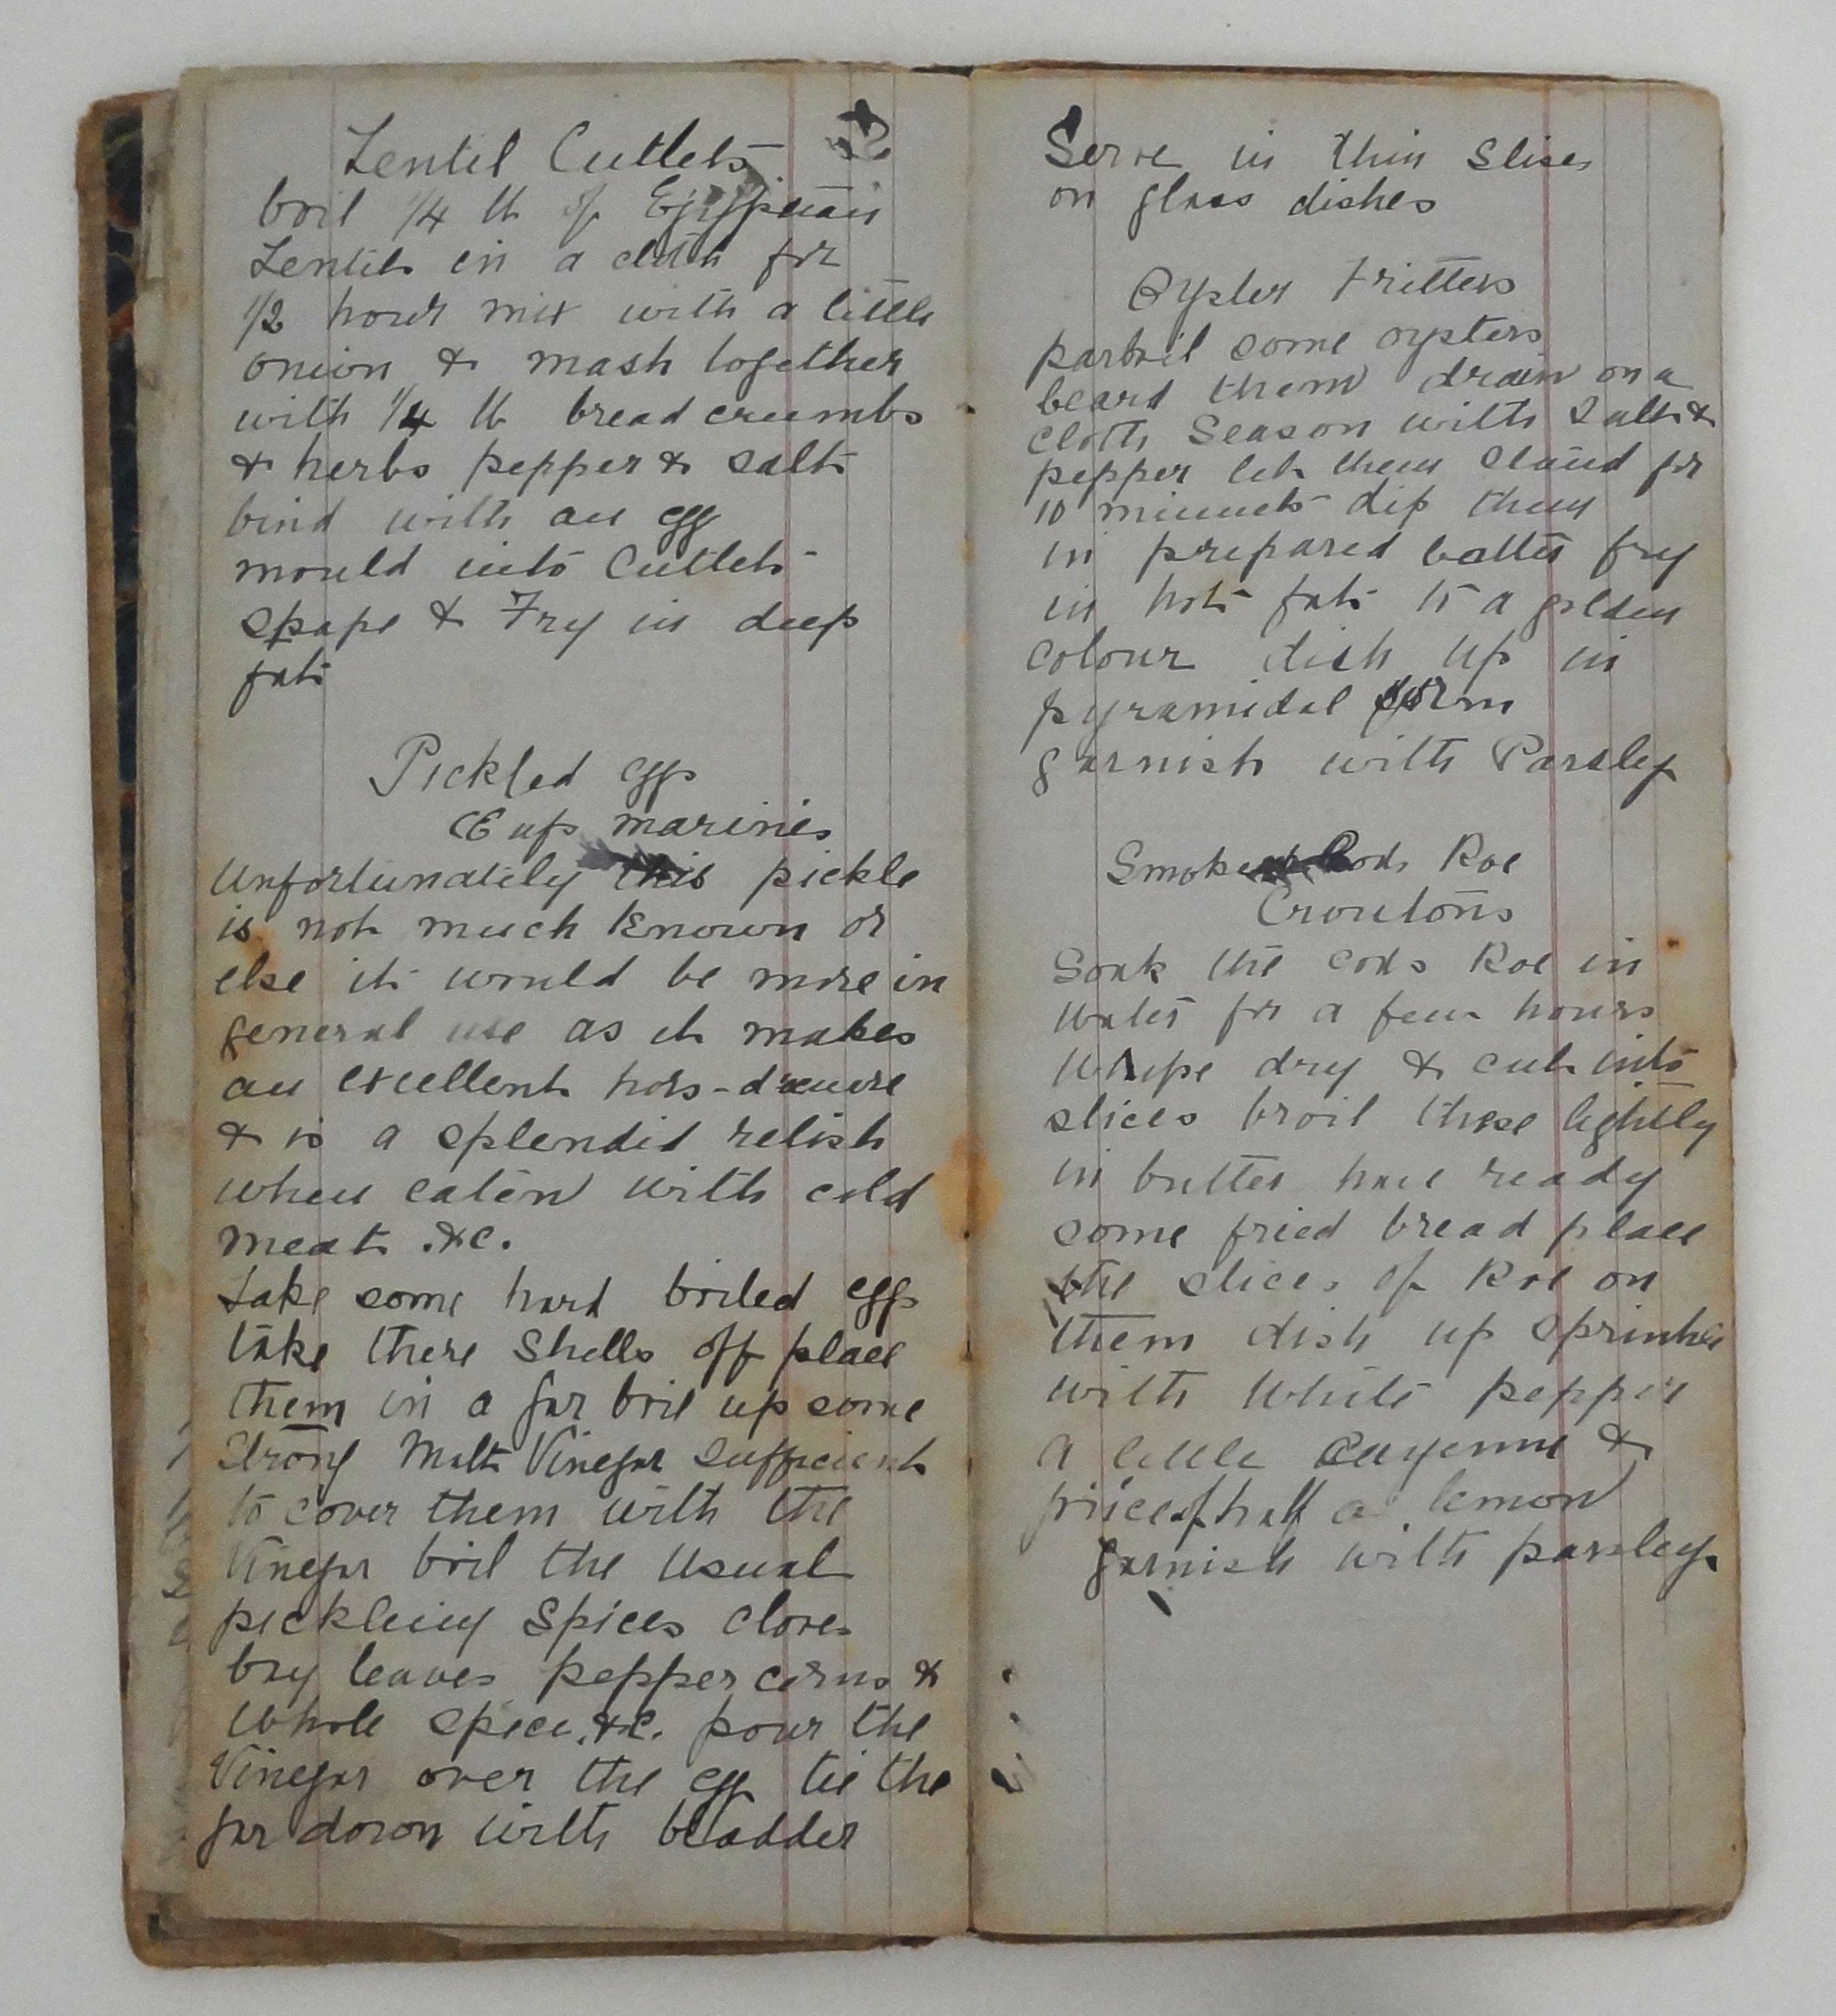 Lentil Cutlets
boil 1/4 lb of Egyptian
Lentils in a cloth for
1/2 hour mix with a little
onion & mash together
with 1/4 lb bread crumbs
& herbs pepper & salt
bind with an egg
mould into Cutlet
spape & Fry in deep
fat
Pickled eggs
Œufs marinés
Unfortunately this pickle
is not much known or
else it would be more in
general use as it makes
an excellent hors-d'œuvre
& is a splendid relish
when eaten with cold
meat &c.
Take some hard boiled eggs
take there Shells off place
them in a jar boil up some
Strong Malt Vinegar sufficient
to cover them with the
Vinegar boil the usual
pickling Spices cloves
bay leaves pepper corns &
whole spice &c. pour the
Vinegar over the egg tie the
jar down with bladder
Serve in thin slices
on glass dishes
Oyster Fritters
parboil some oysters
beard them drain on a
cloth Season with Salt &
pepper let them stand for
10 minuets dip them
in prepared batter fry
in hot fat to a golden
colour dish up in
pyramidal form
garnish with Parsley
Smoked Cods Roe
Croutons
Soak the cods Roe in
water for a few hours
whipe dry & cut into
slices broil these lightly
in butter have ready
some fried bread place
the slices of Roe on
them dish up sprinkle
with white pepper
a little Cayenne &
juice of half a lemon
garnish with parsley